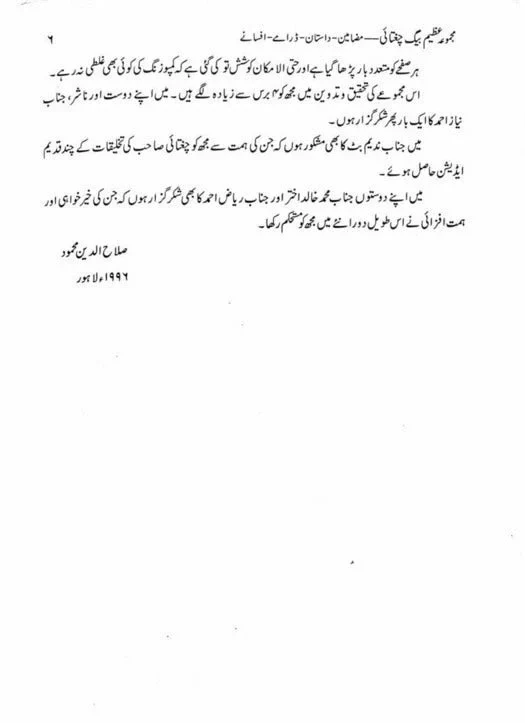 مجموعہ عظیم بیگ چغتائی — مضامین - داستان - ڈرامے - افسانے ۶
ہر صفحے کو متعدد بار پڑھا گیا ہے اور حتی الامکان کوشش تو کی گئی ہے کہ کمپوزنگ کی کوئی بھی غلطی نہ رہے۔
اس مجموعے کی تحقیق و تدوین میں مجھ کو ۴ برس سے زیادہ لگے ہیں۔ میں اپنے دوست اور ناشر، جناب
نیاز احمد کا ایک بار پھر شکر گزار ہوں۔
میں جناب ندیم بٹ کا بھی مشکور ہوں کہ جن کی ہمت سے مجھ کو چغتائی صاحب کی تخلیقات کے چند قدیم
ایڈیشن حاصل ہوئے۔
میں اپنے دوستوں جناب محمد خالد اختر اور جناب ریاض احمد کا بھی شکر گزار ہوں کہ جن کی خیر خواہی اور
ہمت افزائی نے اس طویل دورانئے میں مجھ کو مستحکم رکھا۔
صلاح الدین محمود
۱۹۹۶ء لاہور